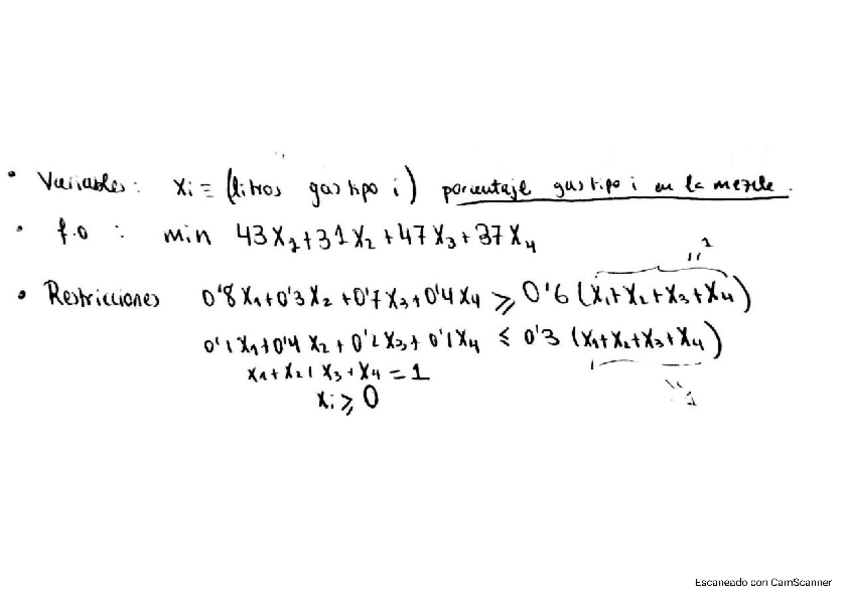 • Variables: xi = (litros gas tipo i) porcentaje gas tipo i en la mezcla.
• f.o : min 43X1+31X2+47X3+37X4
"1
• Restricciones 0'8X1+0'3X2+0'7X3+0'4X4 ≥ 0'6 (X1+X2+X3+X4)
0'1X1+0'4X2+0'2X3+0'1X4 ≤ 0'3 (X1+X2+X3+X4)
X1+X2+X3+X4=1
"1
Xi ≥ 0
Escaneado con CamScanner